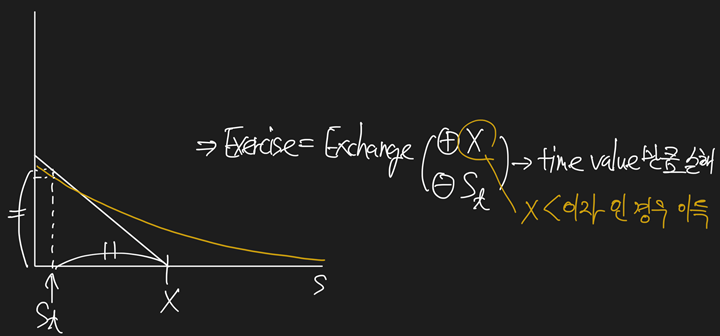 ⇒ Exercise = Exchange ( ⊕ X
⊖ St ) → time value만큼 손해
X < 이자 인 경우 이득
St
X
S